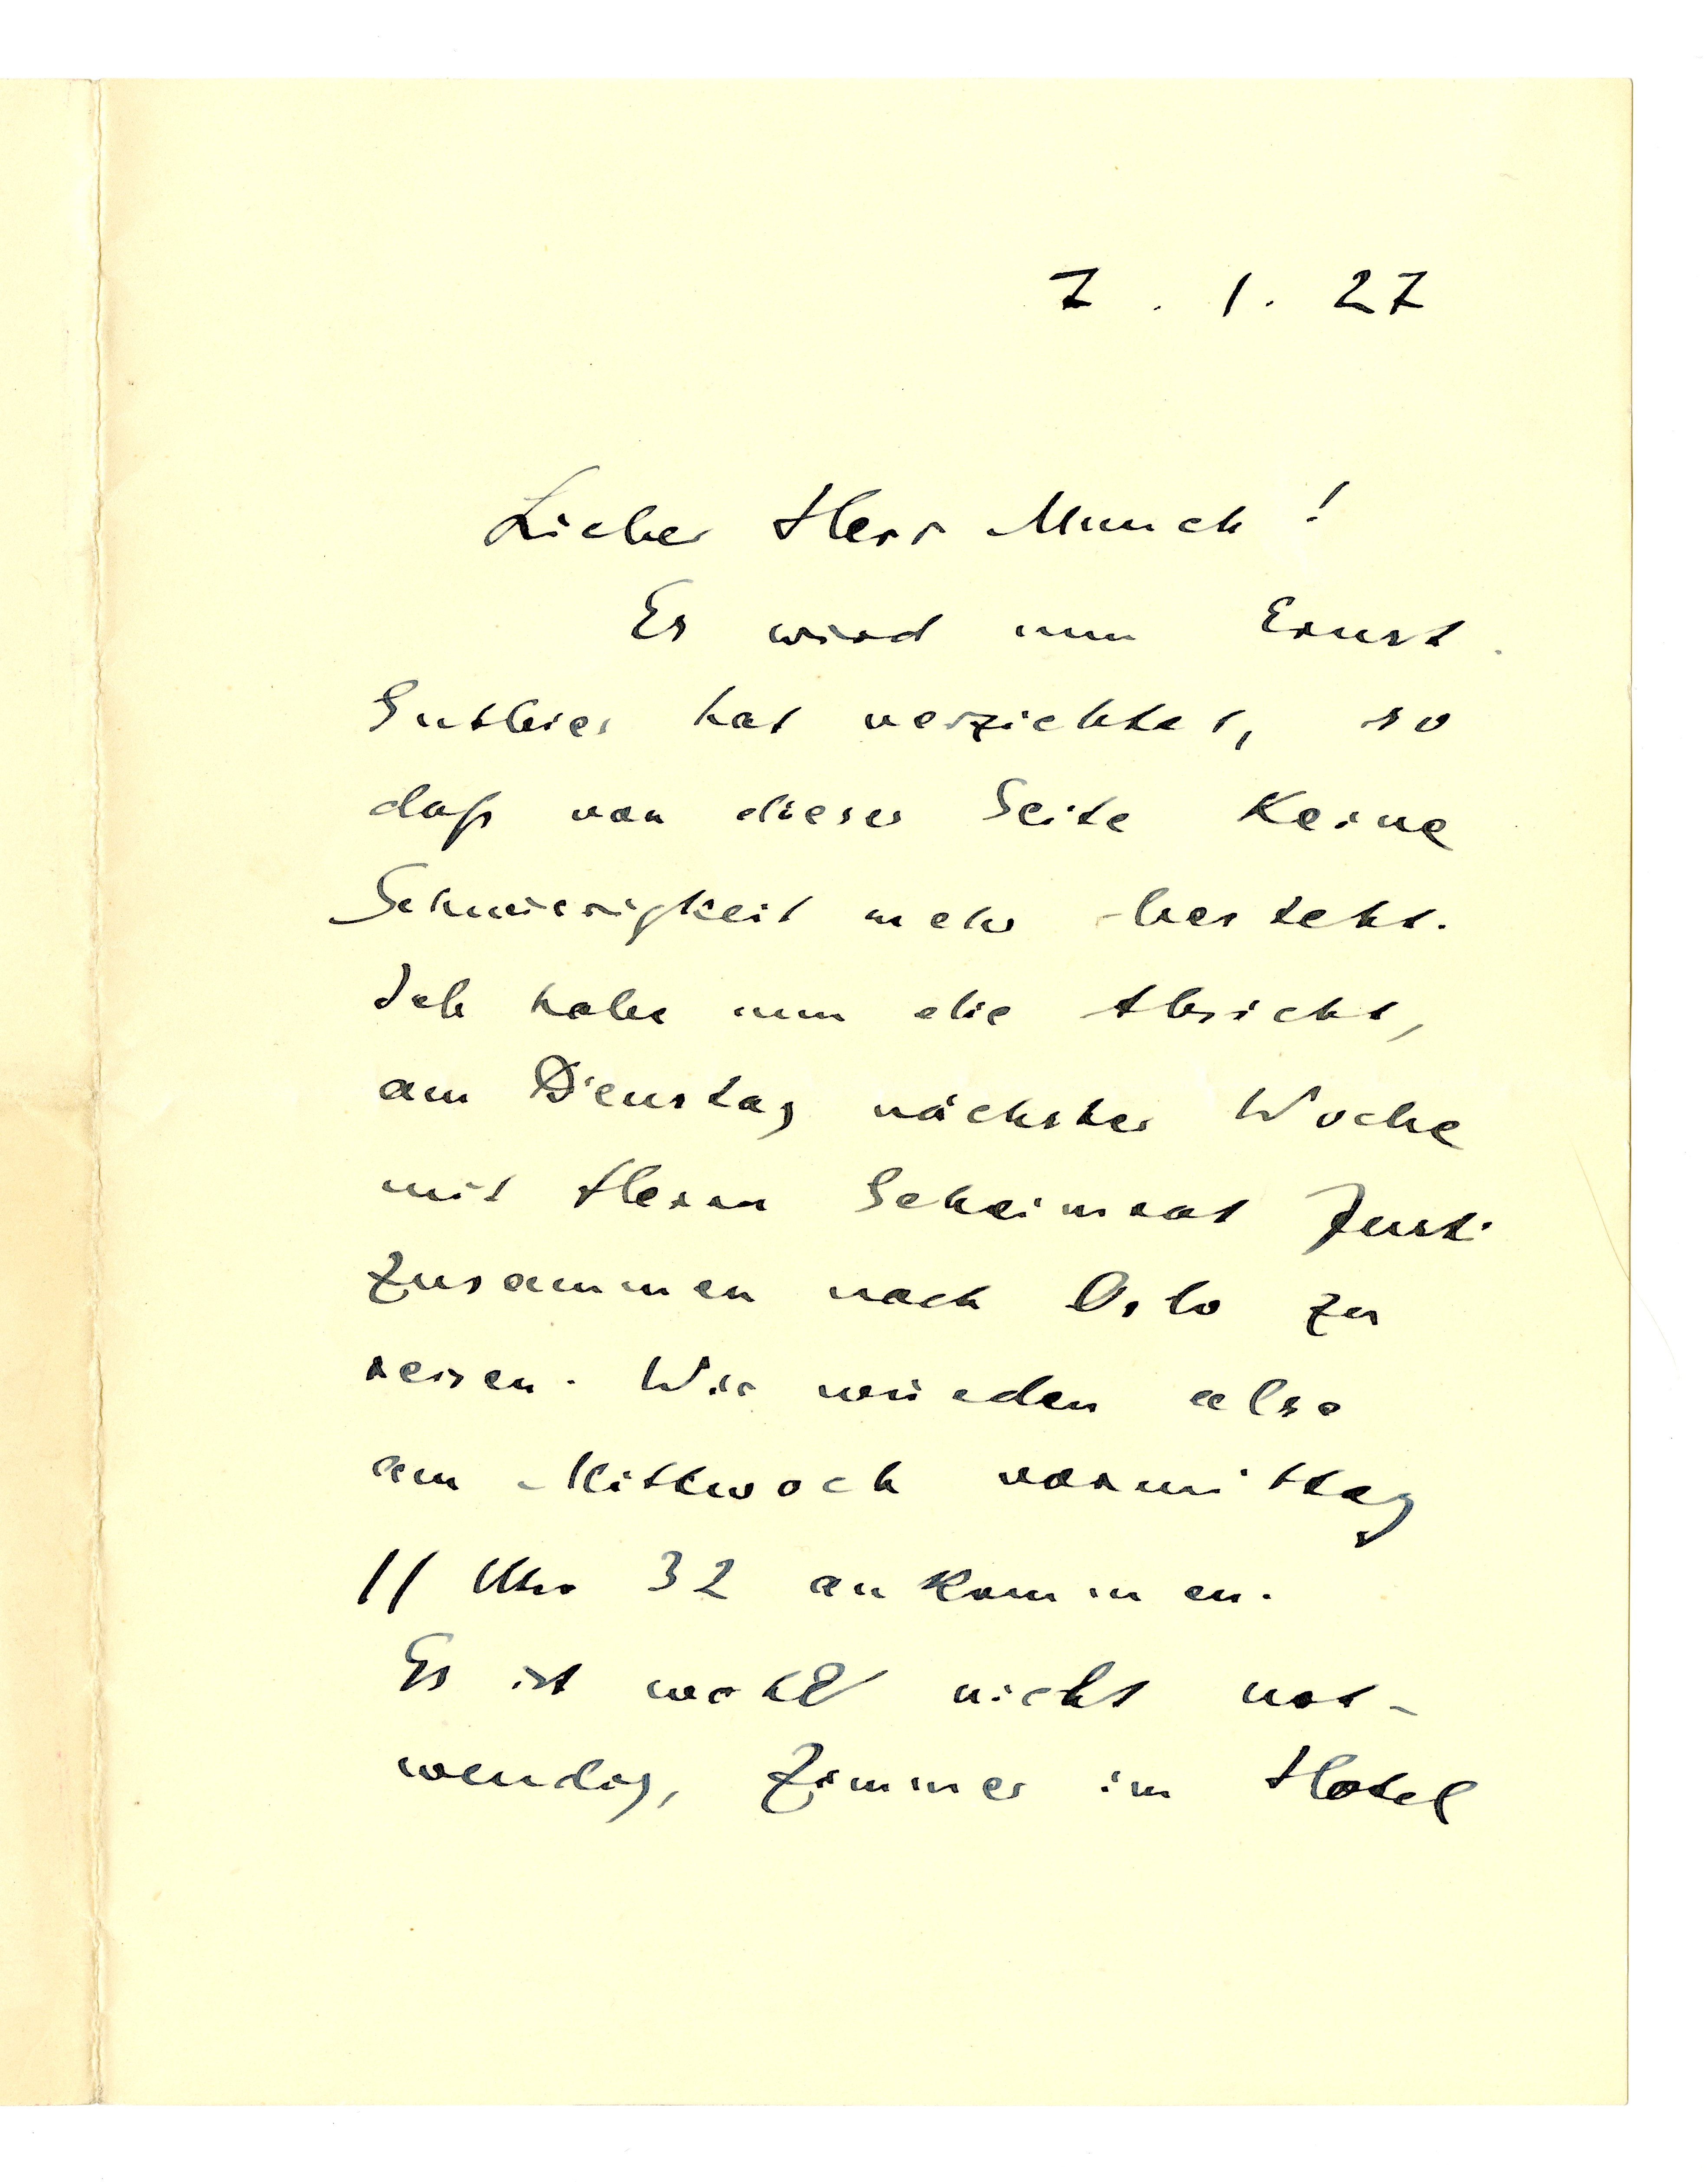 7. 1. 27
Lieber Herr Munch!
Es wird nun Ernst.
Gutbier hat verzichtet, so
daß von dieser Seite keine
Schwierigkeit mehr besteht.
Ich habe nun die Absicht,
am Dienstag nächster Woche
mit Herrn Geheimrat Justi
zusammen nach Oslo zu
reisen. Wir würden also
am Mittwoch vormittag
11 Uhr 32 ankommen.
Es ist wohl nicht not-
wendig, Zimmer im Hotel